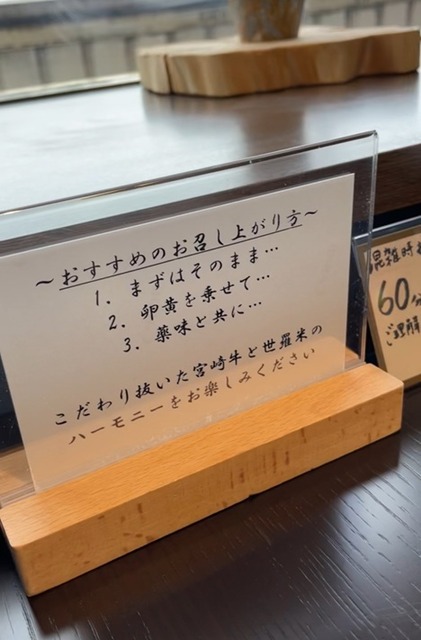 ～おすすめのお召し上がり方～
1. まずはそのまま…
2. 卵黄を乗せて…
3. 薬味と共に…
こだわり抜いた宮崎牛と世羅米の
ハーモニーをお楽しみください
混雑時
60分
ご理解